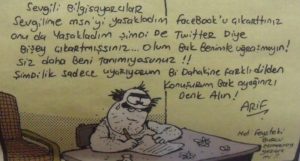 Sevgili Bilgisayarcılar
Sevgilime msn'yi yasakladım Facebook'u çıkarttınız
onu da Yasakladım Şimdi De Twitter Diye
Bişey çıkartmışsınız... Olum Bak Benimle uğraşmayın!
Siz daha Beni Tanımıyosunuz !!
Şimdilik sadece uyarıyorum Bi Dahakine farklı dilden
Konuşurum Bak ayağınızı
Denk Alın!
ARİF
Not